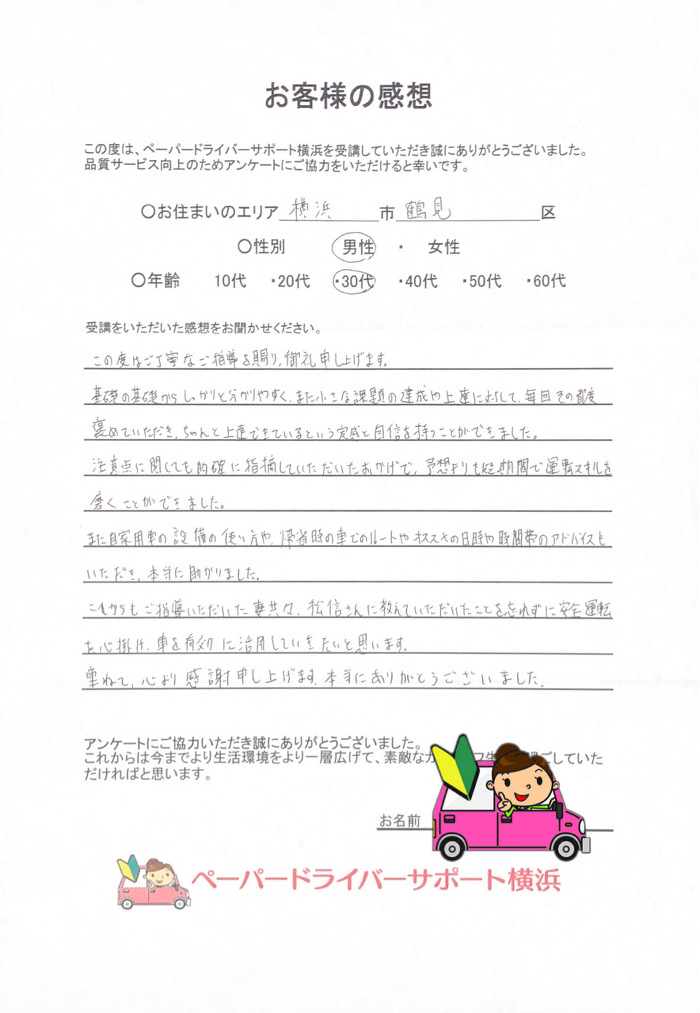 お客様の感想
この度は、ペーパードライバーサポート横浜を受講していただき誠にありがとうございました。
品質サービス向上のためアンケートにご協力をいただけると幸いです。
〇お住まいのエリア 横浜 市 鶴見 区
〇性別 男性 ・ 女性
〇年齢 10代 ・20代 ・30代 ・40代 ・50代 ・60代
受講をいただいた感想をお聞かせください。
この度はご丁寧なご指導を賜り、御礼申し上げます。
基礎の基礎からしっかりと分かりやすく、また小さな課題の達成や上達に対して、毎回その都度
褒めていただき、ちゃんと上達できているという実感と自信を持つことができました。
注意点に関しても的確に指摘していただいたおかげで、予想よりも短期間で運転スキルを
磨くことができました。
また自家用車の設備の使い方や、帰省時の車でのルートやオススメの日時や時間帯のアドバイスも
いただき、本当に助かりました。
これからもご指導いただいた妻共々、松信さんに教えていただいたことを忘れずに安全運転
を心掛け、車を有効に活用していきたいと思います。
重ねて、心より感謝申し上げます。本当にありがとうございました。
アンケートにご協力いただき誠にありがとうございました。
これからは今までより生活環境をより一層広げて、素敵なカ ごしていた
だければと思います。
お名前
ペーパードライバーサポート横浜